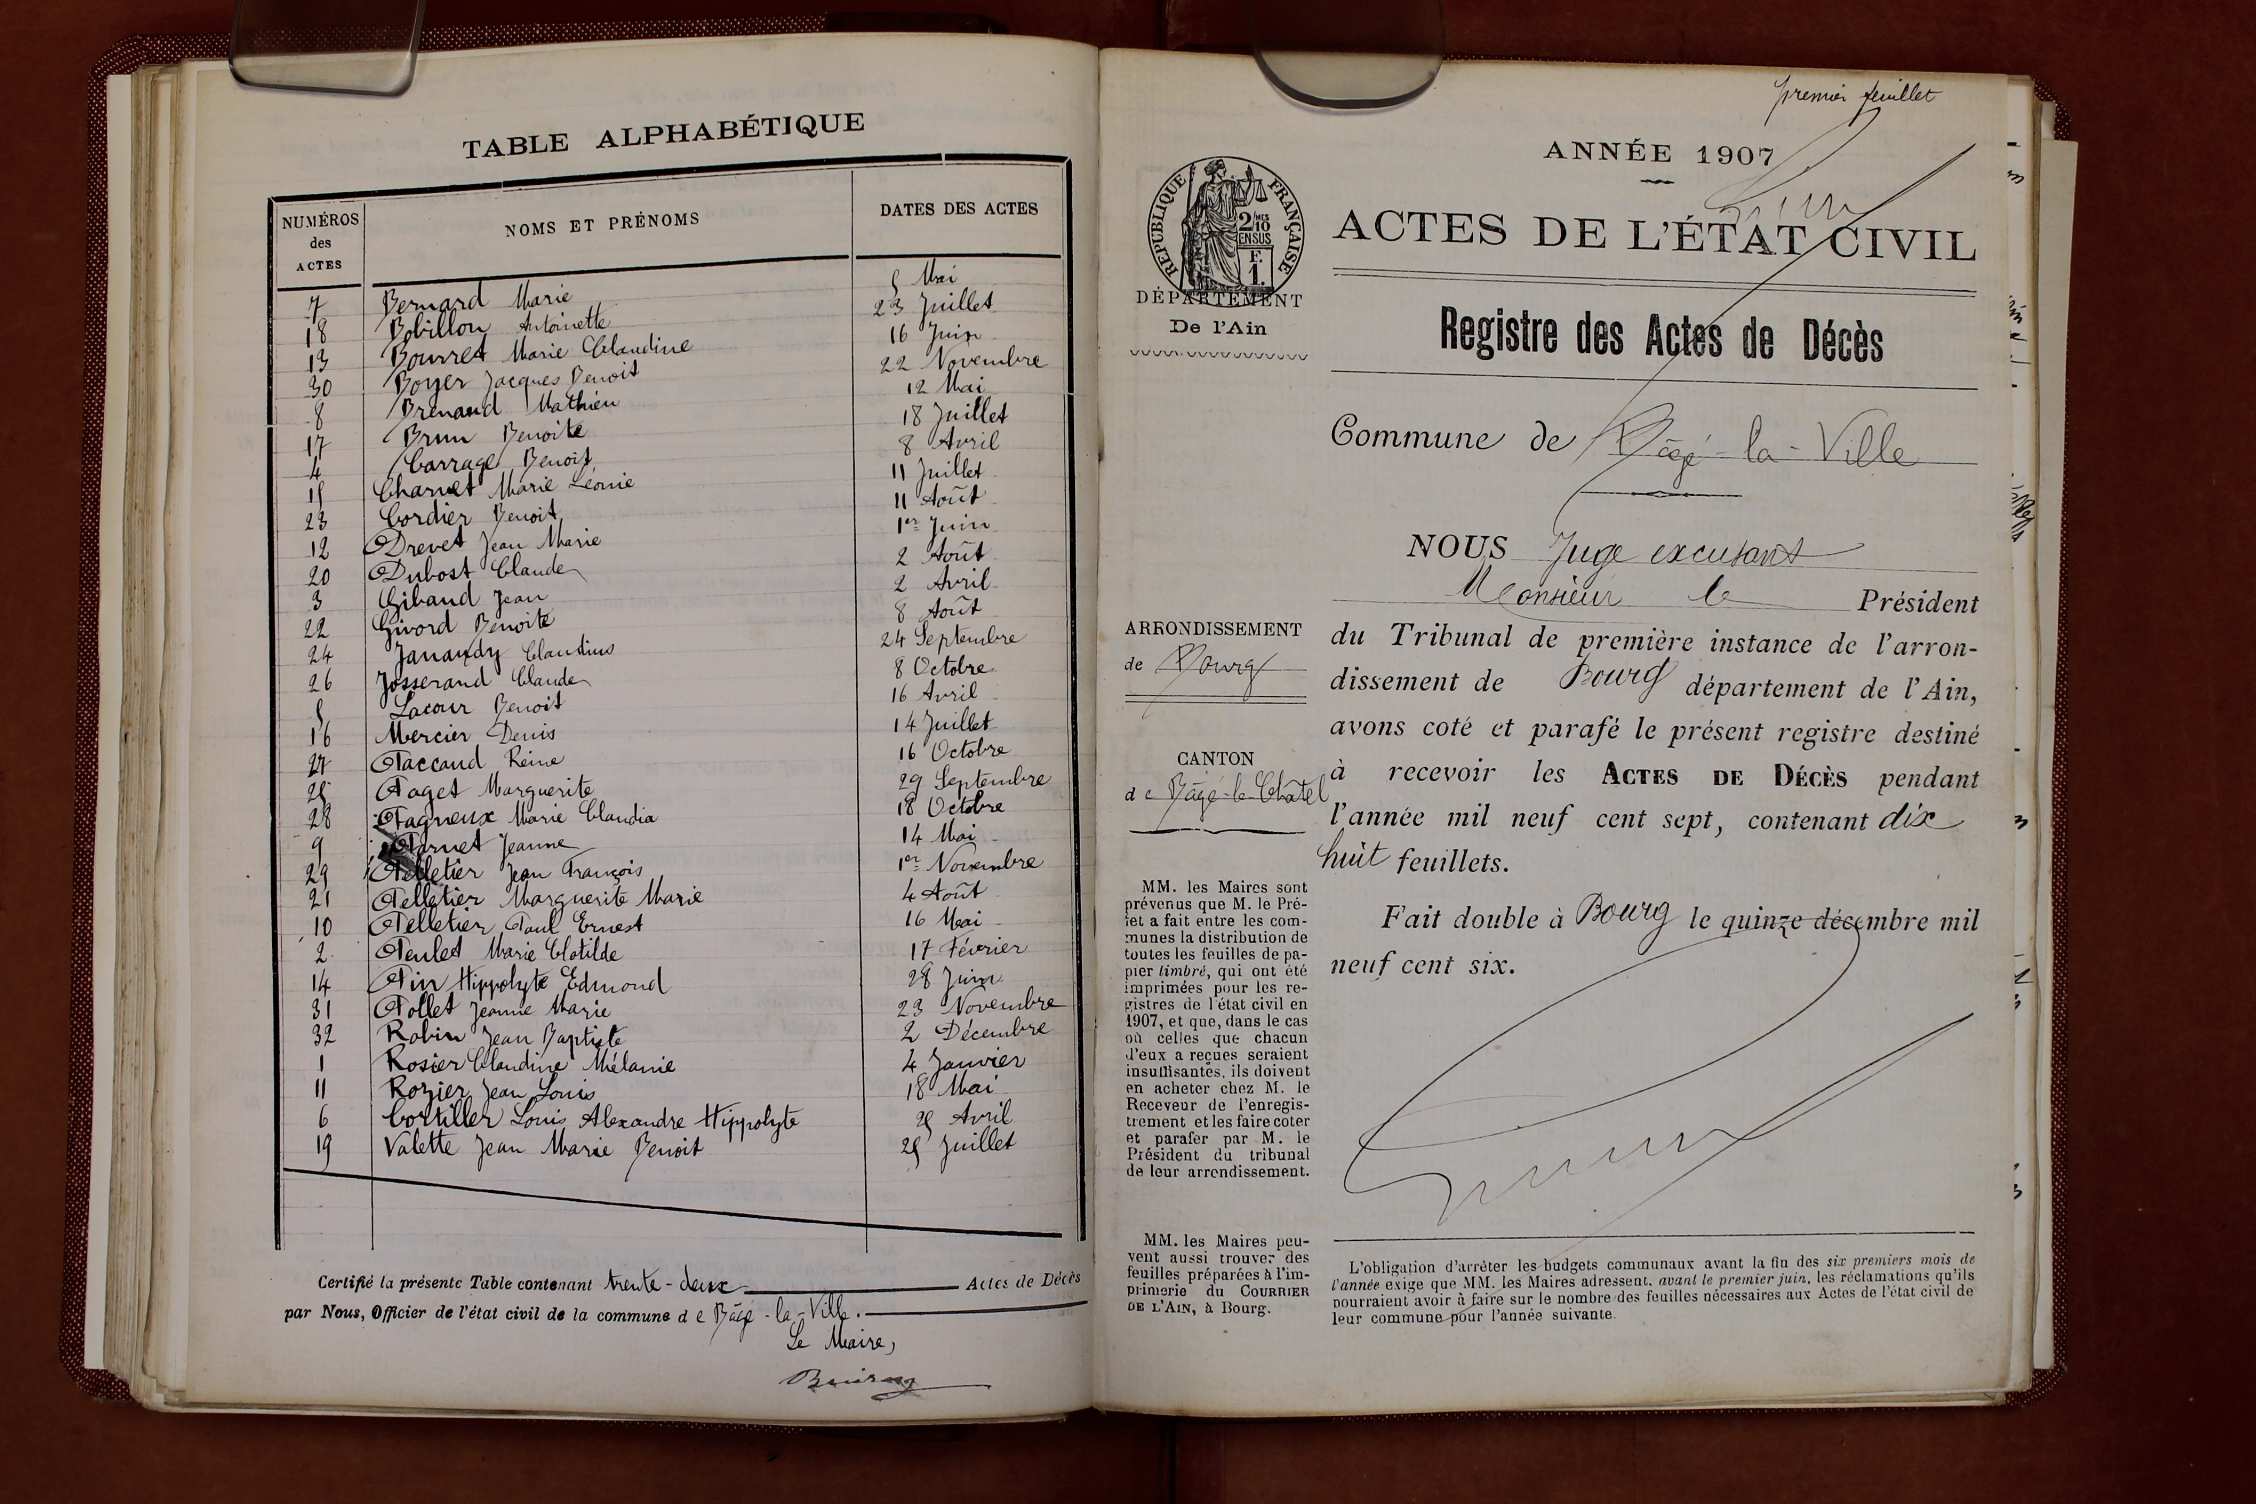 TABLE ALPHABÉTIQUE
NUMÉROS des ACTES NOMS ET PRÉNOMS DATES DES ACTES
7 Bernard Marie 5 Mai
18 Bobillon Antoinette 23 Juillet
13 Bourret Marie Claudine 16 Juin
30 Boyer Jacques Benoit 22 Novembre
8 Brenaud Mathieu 12 Mai
17 Brun Benoite 18 Juillet
4 Carrage Benoit 8 Avril
15 Charvet Marie Léonie 11 Juillet
23 Cordier Benoit 11 Août
12 Drevet Jean Marie 1er Juin
20 Dubost Claude 2 Août
3 Gibaud Jean 2 Avril
22 Givord Benoite 8 Août
24 Janaudy Claudius 24 Septembre
26 Josserand Claude 8 Octobre
5 Lacour Benoit 16 Avril
16 Mercier Denis 14 Juillet
27 Paccaud Reine 16 Octobre
25 Paget Marguerite 29 Septembre
28 Pagneux Marie Claudia 18 Octobre
9 Parnet Jeanne 14 Mai
29 Pelletier Jean François 1er Novembre
21 Pelletier Marguerite Marie 4 Août
10 Pelletier Paul Ernest 16 Mai
2 Peulet Marie Clotilde 17 Février
14 Pin Hippolyte Edmond 28 Juin
31 Pollet Jeanne Marie 23 Novembre
32 Robin Jean Baptiste 2 Décembre
1 Rosier Claudine Mélanie 4 Janvier
11 Rozier Jean Louis 18 Mai
6 Cortiller Louis Alexandre Hippolyte 25 Avril
19 Valette Jean Marie Benoit 25 Juillet
Certifié la présente Table contenant trente-deux Actes de Décès
par Nous, Officier de l'état civil de la commune de Bâgé-la-Ville.
Le Maire,
premier feuillet
ANNÉE 1907
RÉPUBLIQUE FRANÇAISE
2/10 EN SUS
F. 1.
ACTES DE L'ÉTAT CIVIL
DÉPARTEMENT
De l'Ain
Registre des Actes de Décès
Commune de Bâgé-la-Ville
NOUS Juge excusant
Monsieur le Président
du Tribunal de première instance de l'arron-
dissement de Bourg département de l'Ain,
avons coté et parafé le présent registre destiné
à recevoir les ACTES DE DÉCÈS pendant
l'année mil neuf cent sept, contenant dix
huit feuillets.
Fait double à Bourg le quinze décembre mil
neuf cent six.
ARRONDISSEMENT
de Bourg
CANTON
de Bâgé-le-Chatel
MM. les Maires sont
prévenus que M. le Pré-
fet a fait entre les com-
munes la distribution de
toutes les feuilles de pa-
pier timbré, qui ont été
imprimées pour les re-
gistres de l'état civil en
1907, et que, dans le cas
où celles que chacun
d'eux a reçues seraient
insuffisantes, ils doivent
en acheter chez M. le
Receveur de l'enregis-
trement et les faire coter
et parafer par M. le
Président du tribunal
de leur arrondissement.
MM. les Maires peu-
vent aussi trouver des
feuilles préparées à l'im-
primerie du COURRIER
DE L'AIN, à Bourg.
L'obligation d'arrêter les budgets communaux avant la fin des six premiers mois de
l'année exige que MM. les Maires adressent, avant le premier juin, les réclamations qu'ils
pourraient avoir à faire sur le nombre des feuilles nécessaires aux Actes de l'état civil de
leur commune pour l'année suivante.